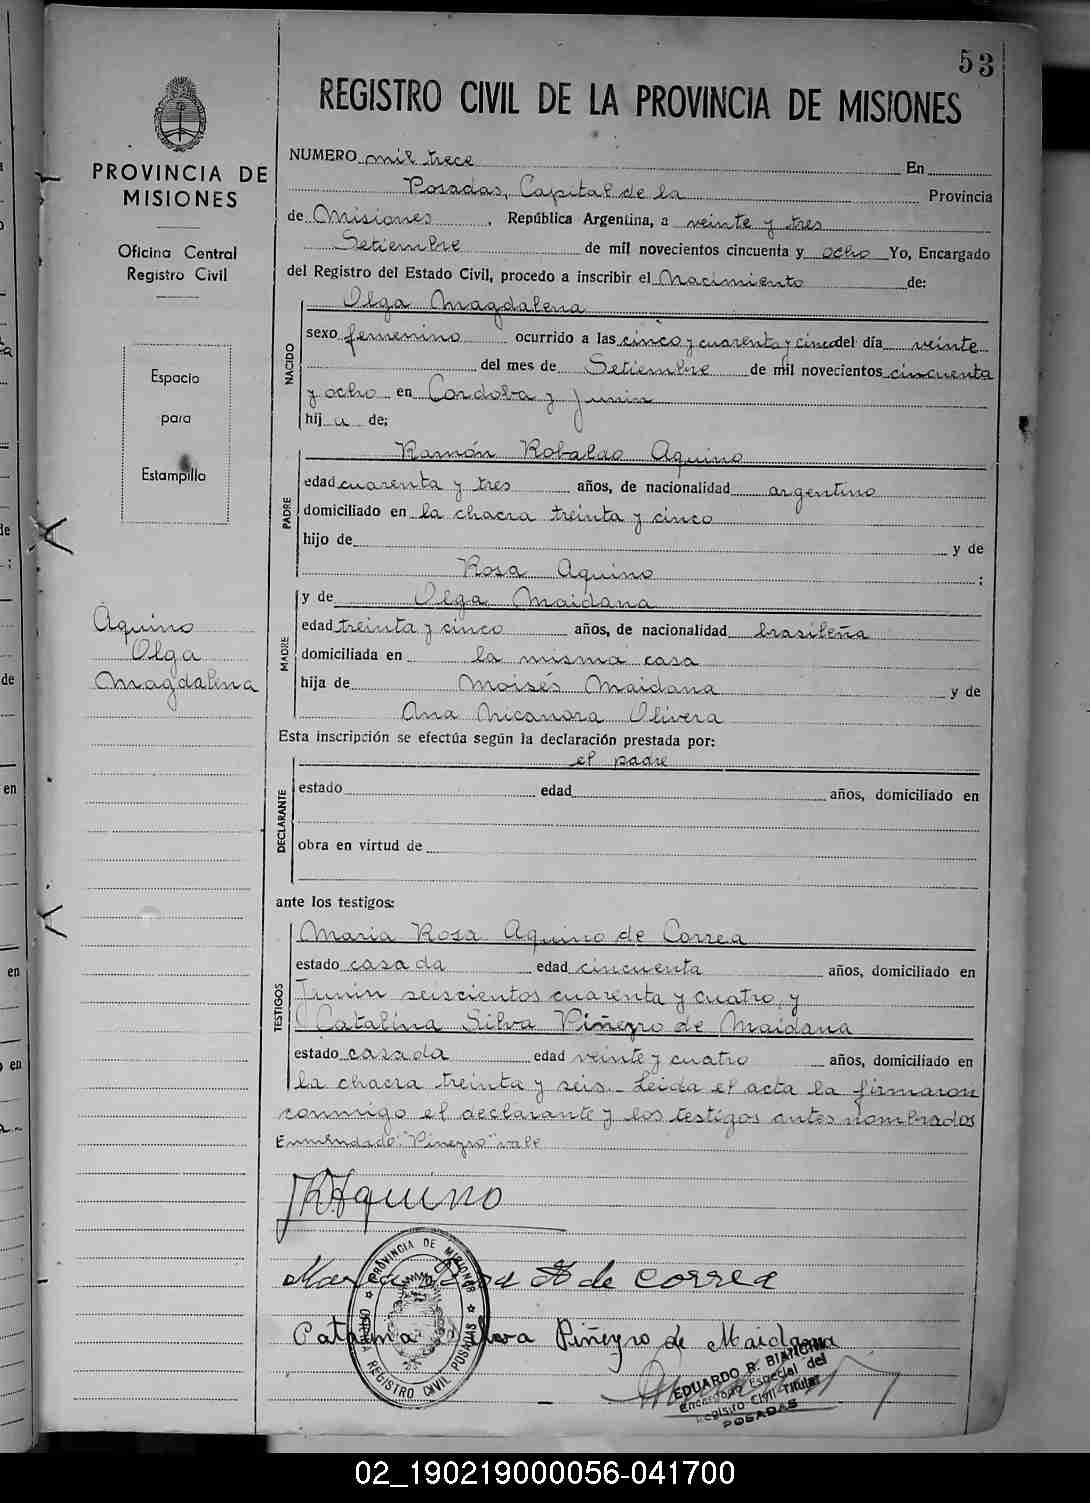 53
REGISTRO CIVIL DE LA PROVINCIA DE MISIONES
PROVINCIA DE
MISIONES
Oficina Central
Registro Civil
Espacio
para
Estampilla
Aquino
Olga
Magdalena
NUMERO mil trece En
Posadas, Capital de la Provincia
de Misiones, República Argentina, a veinte y tres
Setiembre de mil novecientos cincuenta y ocho Yo, Encargado
del Registro del Estado Civil, procedo a inscribir el Nacimiento de:
NACIDO
Olga Magdalena
sexo femenino ocurrido a las cinco y cuarenta y cinco del día veinte
del mes de Setiembre de mil novecientos cincuenta
y ocho en Cordoba y Junin
hij a de;
PADRE
Ramón Robaldo Aquino
edad cuarenta y tres años, de nacionalidad argentino
domiciliado en la chacra treinta y cinco
hijo de y de
Rosa Aquino ;
MADRE
y de Olga Maidana
edad treinta y cinco años, de nacionalidad brasileña
domiciliada en la misma casa
hija de Moisés Maidana y de
Ana Nicanora Olivera
Esta inscripción se efectúa según la declaración prestada por:
DECLARANTE
el padre
estado edad años, domiciliado en
obra en virtud de
ante los testigos:
TESTIGOS
Maria Rosa Aquino de Correa
estado casada edad cincuenta años, domiciliado en
Junin seiscientos cuarenta y cuatro, y
Catalina Silva Piñeyro de Maidana
estado casada edad veinte y cuatro años, domiciliado en
la chacra treinta y seis. Leida el acta la firmaron
conmigo el declarante y los testigos antes nombrados
Enmendado: "Piñeyro" vale
RAquino
Maria Rosa A de Correa
Catalina Silva Piñeyro de Maidana
PROVINCIA DE MISIONES
REGISTRO CIVIL POSADAS
EDUARDO R. BIANCHI
Encargado Especial del
Registro Civil Titular
POSADAS
02_190219000056-041700